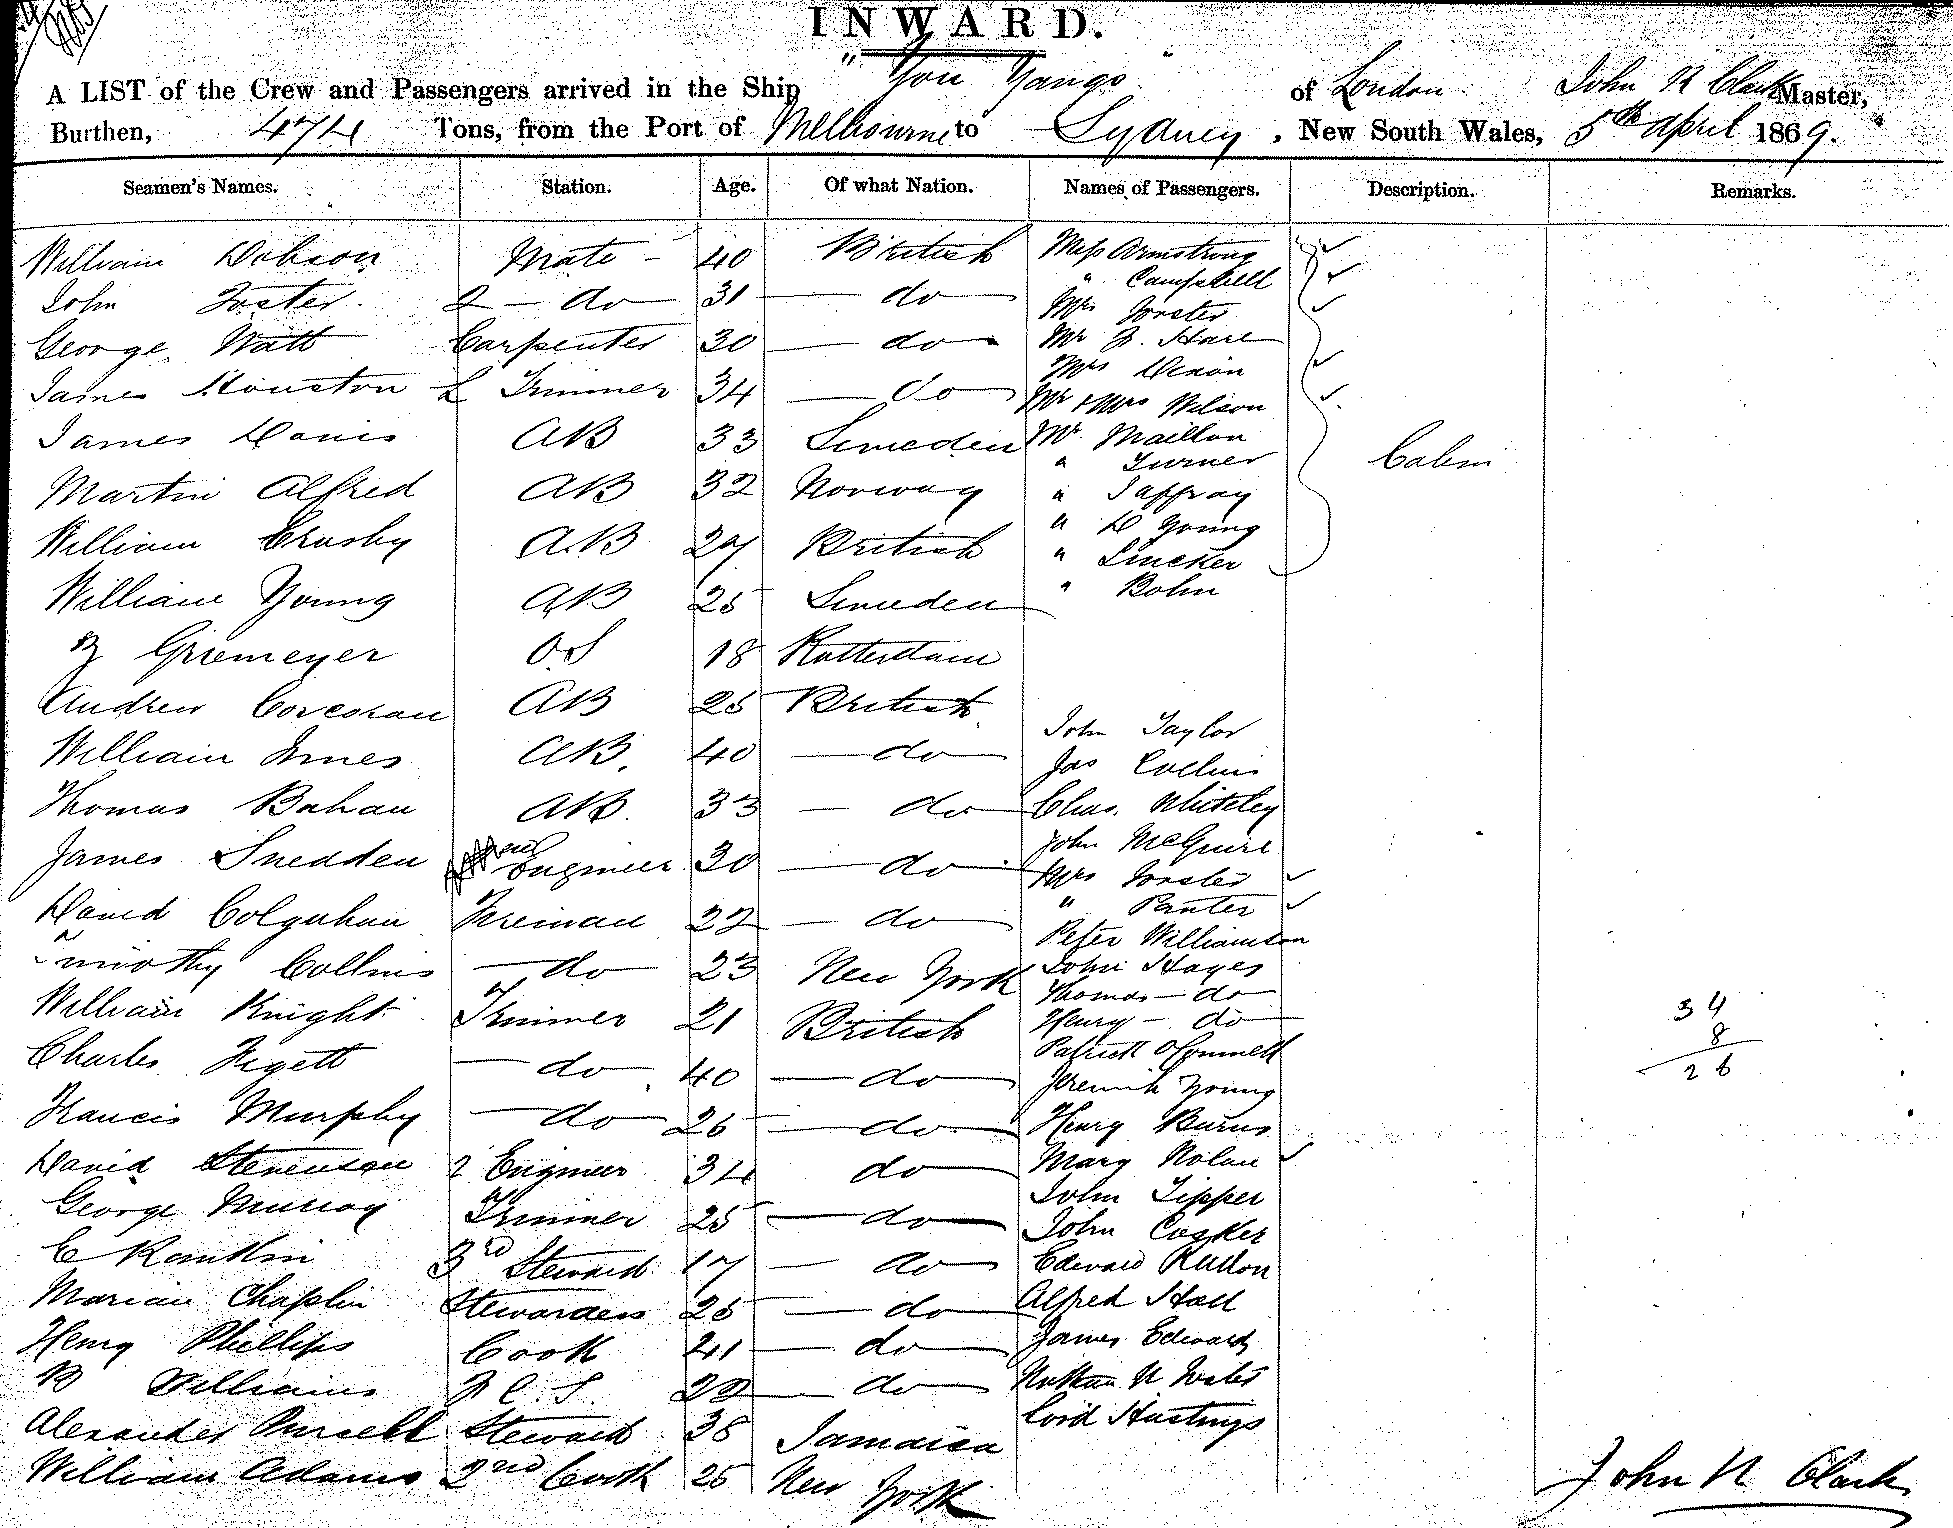 INWARD.
A LIST of the Crew and Passengers arrived in the Ship "You Yangs" of London John N Clark Master,
Burthen, 474 Tons, from the Port of Melbourne to Sydney, New South Wales, 5th April 1869.
Seamen's Names. Station. Age. Of what Nation. Names of Passengers. Description. Remarks.
William Dobson Mate 40 British Miss Armstrong
" Campbell
John Foster 2 - do 31 do Mrs Forster
George Watt Carpenter 30 do Mr J. Hare
Mrs Dixon
James Houston L Trimmer 34 do Mr & Mrs Wilson
James Davis AB 33 Sweeden Mr Maillon
" Turner Cabin
Martin Alfred AB 32 Norway " Jaffray
" D Young
William Crosby A.B 27 British " Lincker
William Young AB 25 Sweeden " Bohn
Griemeyer O.S 18 Rotterdam
Andrew Corcoran AB 25 British
John Taylor
William Innes AB. 40 do Jas Collins
Thomas Bahan AB. 33 do Chas. Whiteley
John McGuire
James Snedden Engineer 30 do Mrs Forster
" Panter
David Colquhun Fireman 22 do Peter Williamson
Timothy Collins do 23 New York John Hayes
Thomas - do
William Knight Trimmer 21 British Henry - do
34
8
26
Patrick O'Connell
Charles Figett do 40 do Jeremih Young
Francis Murphy do 26 do Henry Burns
David Stevenson 2 Engineer 34 do Mary Nolan
John Tipper
George Murray Trimmer 25 do John Cosker
C Rankin 3rd Steward 17 do Edward Rudon
Marian Chaplin Stewardess 25 do Alfred Hall
Henry Phillips Cook 41 do James Edwards
B Williams F.C.S. 22 do Nathan N
Lord Hastings
Alexander Pursell Steward 38 Jamaica
William Adams 2nd Cook 25 New York
John N Clark